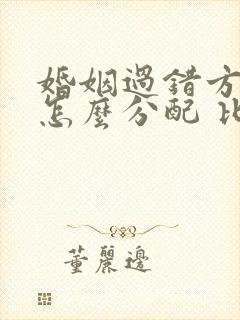 婚姻過錯方
怎麼分配 比
董麗邊